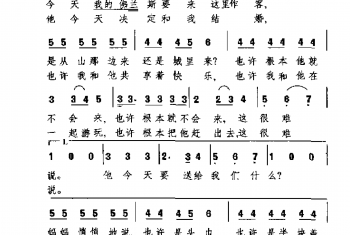 今天我的弗兰斯要来这里作客,
他今天决定和我结婚,
55 55 55 55 44 44 6 44 44 44
是从山那边来还是城里来?也许根本他就
也许我和他共享着快乐,也许我和他在
3 345 33·333 323 4 5 67
不会来,也许根本就不会来,这很难
一起游玩,也许根本把他赶出去,这很难
1 00 0 323 44 34 5 67 100 0
说。他今天要送给我们什么?
说。
55 55 55 55 44 44 6 44 44 44
妈妈悄悄地说也许是头巾 也许是半块